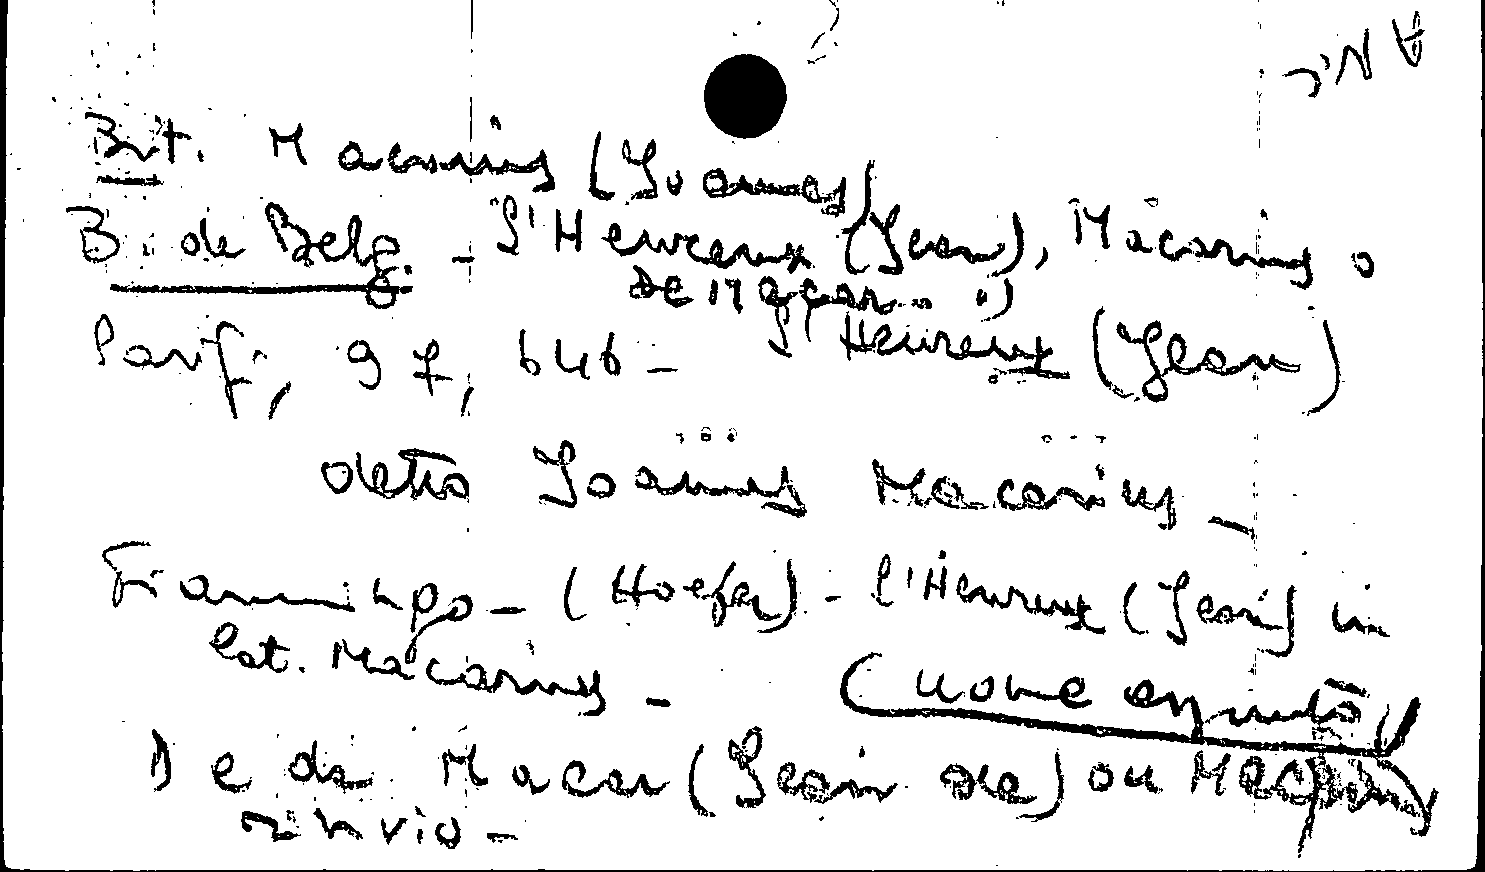 Brit. Macarius (Joannes)
B. de Belg. - L'Heureux (Jean), Macarius o
de Macar
Parigi, 97, 646 - L'Heureux (Jean)
detto Joannes Macarius -
Fiammingo - (Hoefer) - l'Heureux (Jean) in
lat. Macarius - (nome assunto)
De da Macar (Jean de) ou Macarius
rinvio -